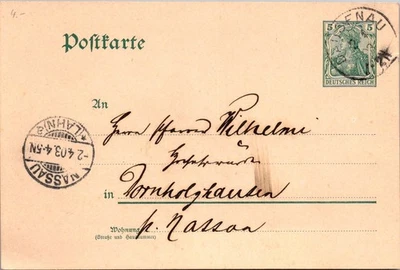 4.-
Postkarte
5 5
DEUTSCHES REICH
An
Herrn Pfarrer Wilhelmi
Hochehrwürden
in Dornholzhausen
Wohnung
(Straße und Hausnummer)
p. Nassau
NASSAU
-2.4.03.4-5N
(LAHN)